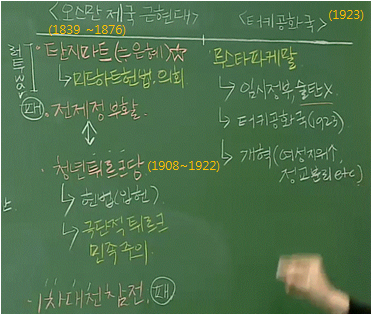 <오스만 제국 근현대>
(1839 ~1876)
·탄지마트(=은혜)☆
↳미다하트헌법, 의회
패. 전제정부활.
↕
청년튀르크당 (1908~1922)
↳헌법(입헌)
↳극단적 튀르크
민족주의.
1차대전참전. 패
<터키공화국> (1923)
무스타파케말
↳임시정부, 술탄X
↳터키공화국(1923)
↳개혁(여성지위↑,
정교분리etc)